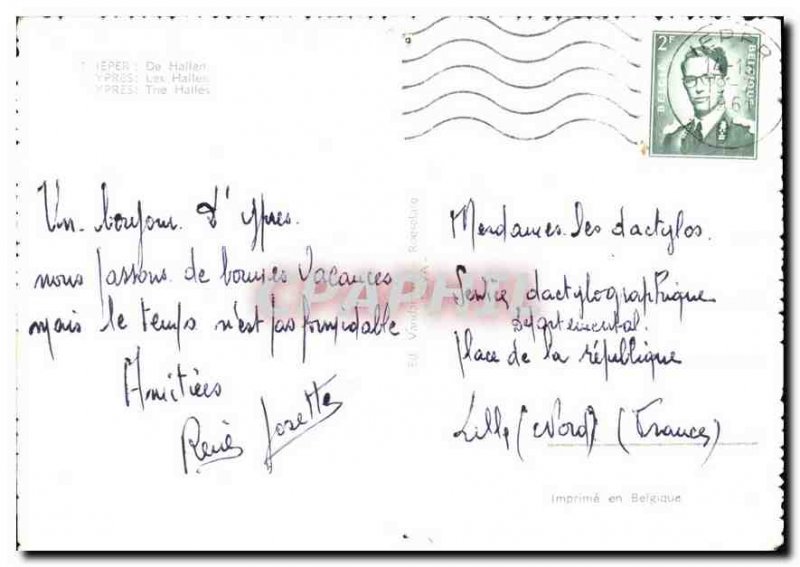 IEPER: De Hallen
YPRES: Les Halles
YPRES: The Halles
2F
BELGIQUE
IEPER
Un bonjour d'Ypres.
nous passons de bonnes Vacances
mais le temps n'est pas formidable
Amitiées
René Josette
CPAPHIL
Roeselare
Mesdames les dactylos.
Service dactylographique
départemental.
place de la république
Lille (Nord) (France)
Imprimé en Belgique